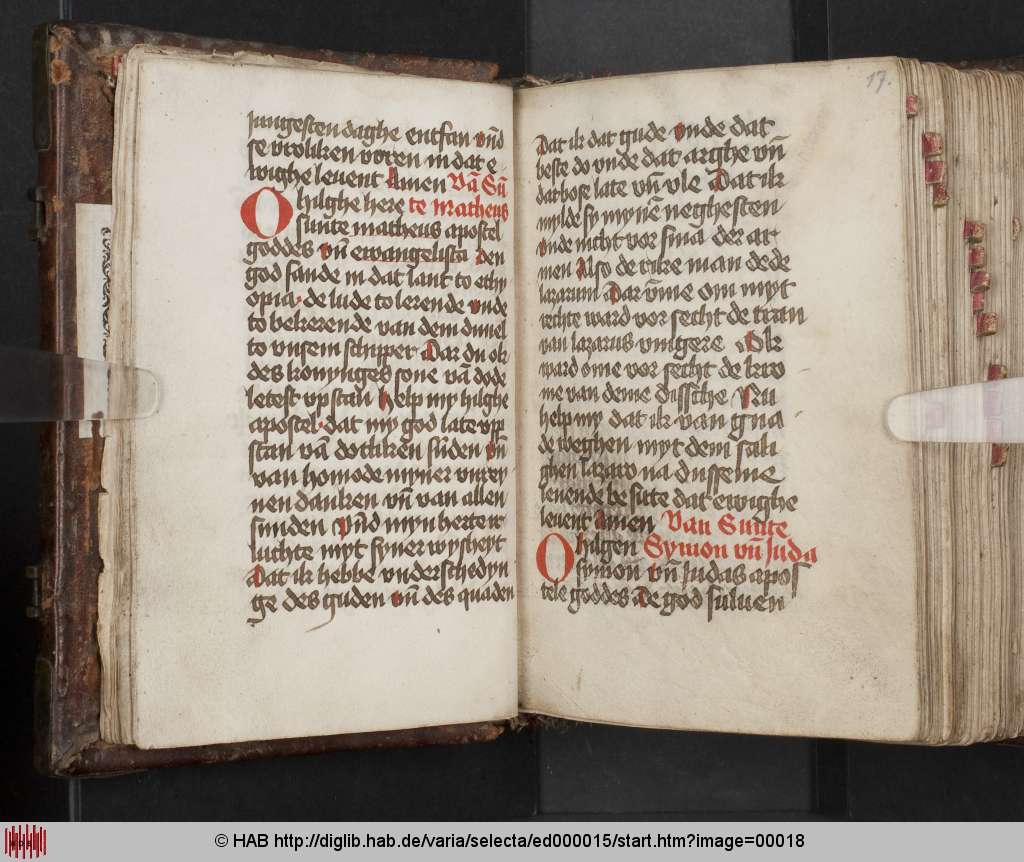 jungesten daghe entfan vn̄d
se vroliken voren in dat e
wighe levent Amen Vā Sū
O hilghe here te Matheus
sunte matheus apostel
goddes vn̄ ewangelista den
god sande in dat lant to ethy
opia· de lude to lerende vnde
to bekerende van dem duuel
to vnsem schipper Dar du ok
des konynges sone vā dode
letest vp stan help my hilghe
apostel· dat my god late vp
stan vā dotliken sūden vn̄
van homode myner vnrey
nen danken vn̄ van allen
sunden vnd myn herte er
luchte myt syner wysheyt
Dat ik hebbe vnderschedyn
ge des guden vn̄ des quaden
17.
Dat ik dat gude vnde dat
beste do vnde dat arghe vn̄
dat bose late vn̄ vle Dat ik
mylde sy mynē neghesten
vnde nicht vor sma der ar
men Also de rike man dede
lazarum Dar v̄me om myt
rechte ward vor secht de tran
van lazarus vingere Ok
ward ome vor secht de kro
me van deme dissche Nu
help my dat ik van gna
de weghen myt dem sali
ghen lazaro na dusseme
levende be sitte dat ewighe
levent Amen Van Sunte
O hilgen Symon vn̄ Juda
symon vn̄ Judas apos
tele goddes De god suluen
© HAB http://diglib.hab.de/varia/selecta/ed000015/start.htm?image=00018